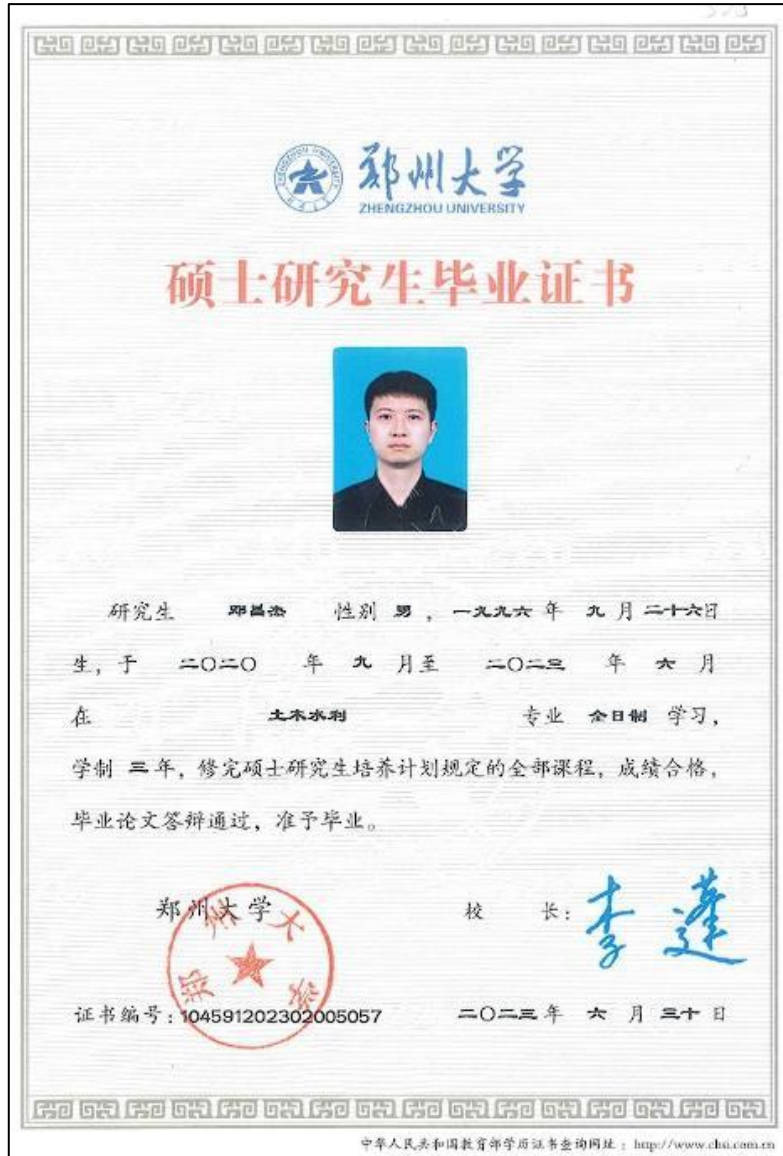 郑州大学
ZHENGZHOU UNIVERSITY
硕士研究生毕业证书
研究生 邓昌杰 性别 男 ，一九九六 年 九 月 二十六日
生，于 二〇二〇 年 九 月至 二〇二三 年 六 月
在 土木水利 专业 全日制 学习，
学制 三 年，修完硕士研究生培养计划规定的全部课程，成绩合格，
毕业论文答辩通过，准予毕业。
郑州大学 校 长：李蓬
郑州大学
证书编号：104591202302005057 二〇二三 年 六 月 三十 日
中华人民共和国教育部学历证书查询网址：http://www.chsi.com.cn